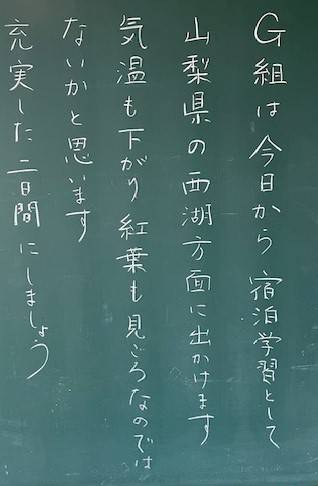 G組は今日から宿泊学習として
山梨県の西湖方面に出かけます
気温も下がり紅葉も見ごろなのでは
ないかと思います
充実した二日間にしましょう